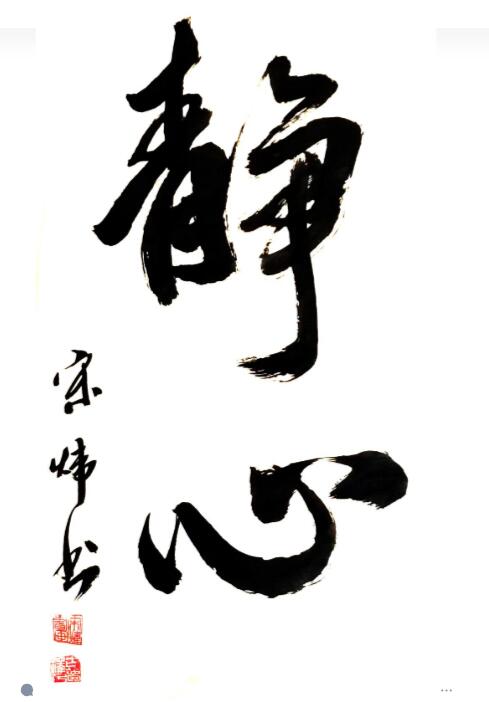 静心
宋炜书